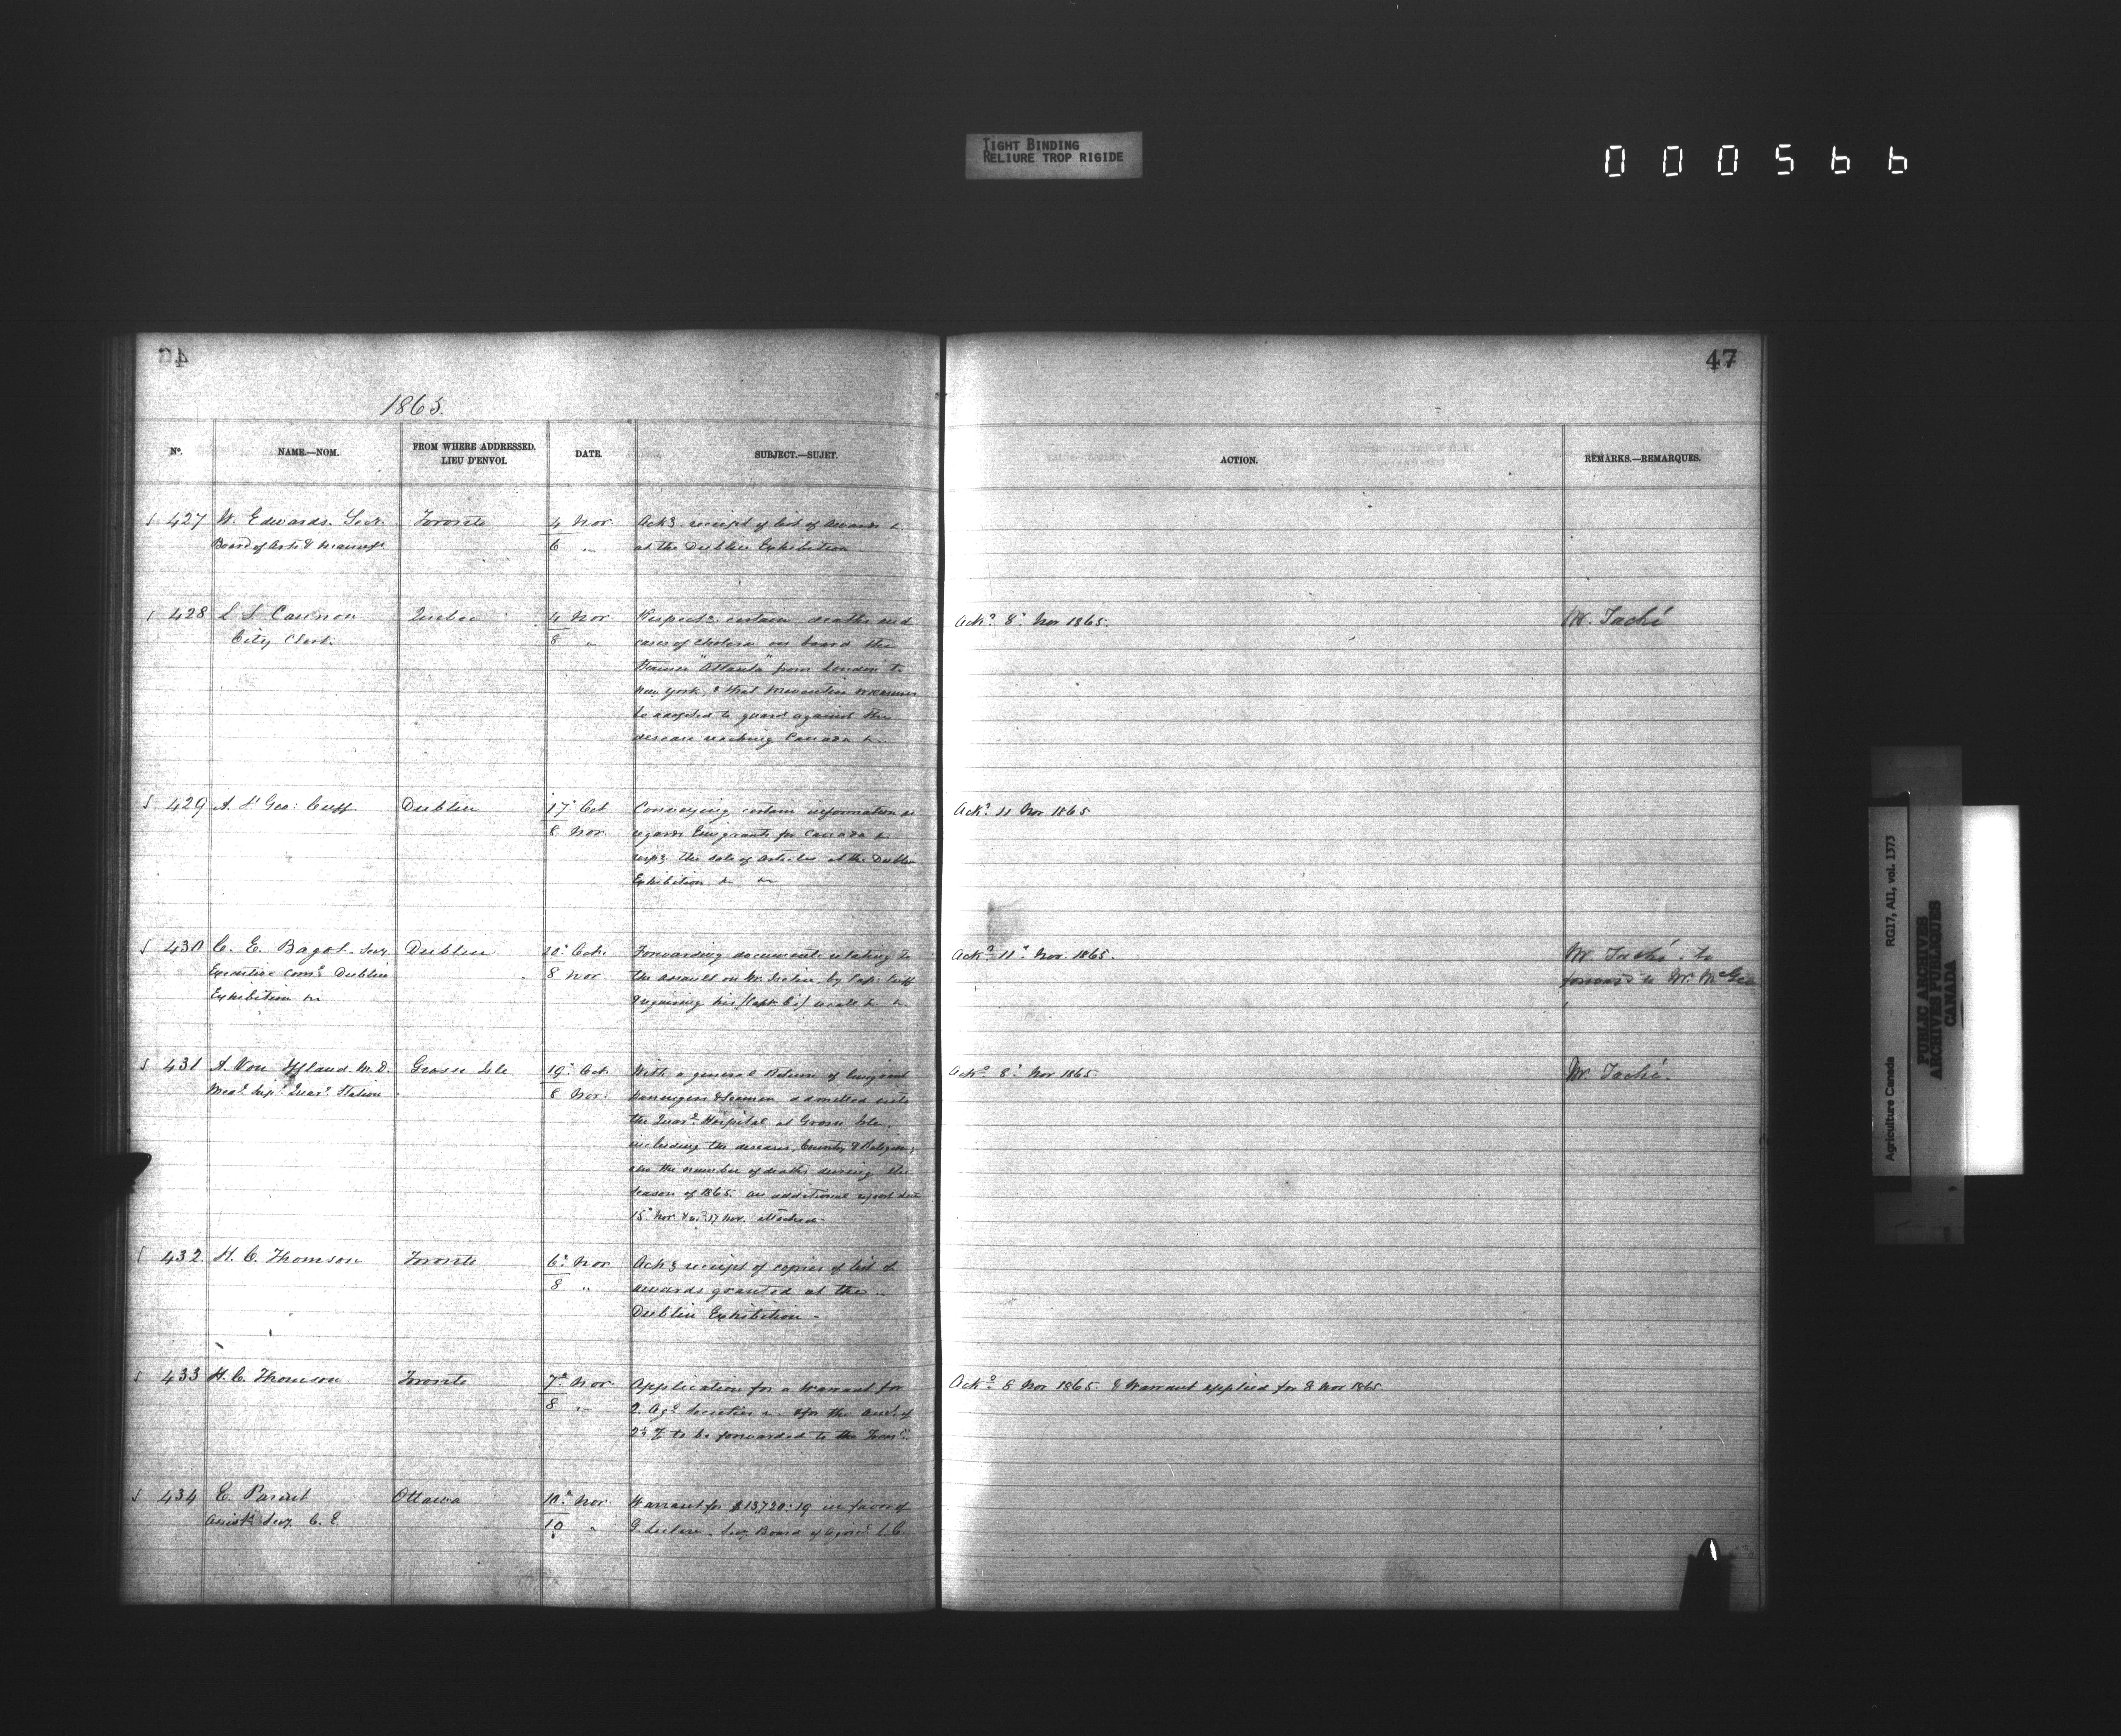 TIGHT BINDING
RELIURE TROP RIGIDE
000566
46
1865.
No. NAME.—NOM. FROM WHERE ADDRESSED. LIEU D'ENVOI. DATE. SUBJECT.—SUJET.
427 W. Edwards. Secy. Toronto 4 Nor. Ackg receipt of list of awards &
Board of Arts & Manufs 6 " at the Dublin Exhibition
428 Cannon Quebec 4 Nov Respectg certain deaths and
City Clerk 8 " cases of cholera on board the
Steamer "Atlanta" from London to
New York, & that measures
be adopted to guard against the
disease reaching Canada &c.
429 A. St Geo: Cuff Dublin 17 Oct Conveying certain information as
8 Nov. regards Emigrants for Canada &
respg the sale of Articles at the Dublin
Exhibition &c &c
430 C. E. Bagot. Secy Dublin 20 Oct. Forwarding documents relating to
Executive Come Dublin 8 Nov the assault on Mr. by Capt. Cuff
Exhibition &c & requiring his (Capt C's) recall &c &c
431 A. Von Iffland M.D. Grosse Isle 19 Oct. With a general Return of Emigrant
Medl Supt Quarn Station 8 Nov. Passengers & Seamen admitted into
the Quarn Hospital at Grosse Isle,
including the diseases, Country & Religion,
also the number of deaths during the
season of 1865. An additional report
15 Nov 17 Nov. attached.
432 H. C. Thomson Toronto 6 Nov Ackg receipt of copies of list of
8 " awards granted at the
Dublin Exhibition
433 H. C. Thomson Toronto 7 Nov Application for a Warrant for
8 " 2. Agl Societies & for the amt of
to be forwarded to the
434 E. Parent Ottawa 10 Nov Warrant for $13720.19 in favor of
Assist Secy C. E. 10 " G. Leclere. Secy. Board of Agricl L. C.
47
ACTION. REMARKS.—REMARQUES.
Ackd 8 Nov 1865. Mr. Taché
Ackd 11 Nov 1865
Ackd 11 Nov. 1865. Mr. Taché. to
forward to Mr. McGee
Ackd 8 Nov 1865 Mr. Taché.
Ackd 8 Nov 1865. & Warrant applied for 8 Nov 1865.
Agriculture Canada RG17, AI1, vol. 1373
PUBLIC ARCHIVES
ARCHIVES PUBLIQUES
CANADA